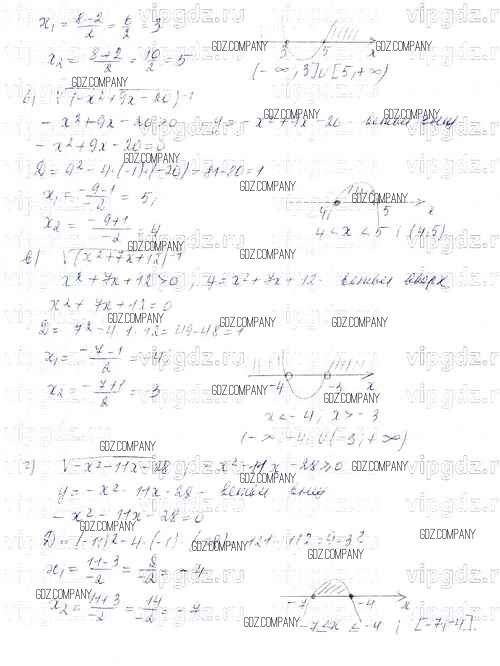 x₁ = (8-2)/2 = 6/2 = 3
x₂ = (8+2)/2 = 10/2 = 5
3 5 x
(-∞; 3] ∪ [5; +∞)
б) √(-x²+9x-20)⁻¹
-x²+9x-20>0 ; y = -x²+9x-20 - ветви вниз
-x²+9x-20=0
D = 9²-4·(-1)·(-20) = 81-80=1
x₁ = (-9-1)/-2 = 5;
x₂ = (-9+1)/-2 = 4
4 5 x
4 < x < 5 ; (4;5)
в) √(x²+7x+12)⁻¹
x²+7x+12>0 ; y = x²+7x+12 - ветви вверх
x²+7x+12=0
D = 7²-4·1·12 = 49-48=1
x₁ = (-7-1)/2 = -4;
x₂ = (-7+1)/2 = -3
-4 -3 x
x < -4 ; x > -3
(-∞; -4) ∪ (-3; +∞)
г) √(-x²-11x-28) -x²-11x-28≥0
y = -x²-11x-28 - ветви вниз
-x²-11x-28=0
D = (-11)²-4·(-1)·(-28) = 121-112=9=3²
x₁ = (11-3)/-2 = 8/-2 = -4
x₂ = (11+3)/-2 = 14/-2 = -7
-7 -4 x
-7 ≤ x ≤ -4 ; [-7;-4].
GDZ.COMPANY
vipgdz.ru